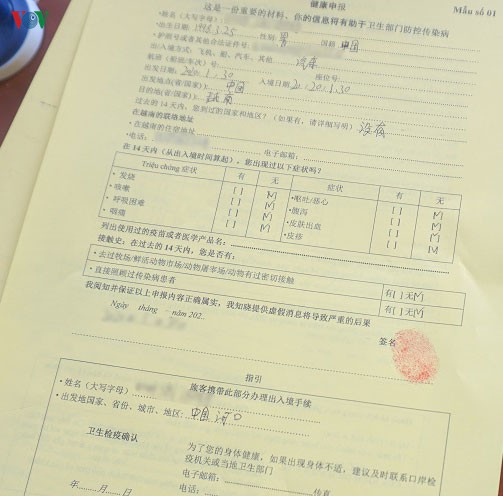 VOV
健康申报
Mẫu số 01
这是一份重要的材料、你的信息将有助于卫生部门防控传染病
姓名(大写字母):
出生日期: 1998.3.25 性别: 男 国籍: 中国
护照号或者其他合法证件号:
出/入境方式: 飞机、船、汽车、其他 汽车
航班(船舶/车次)号: 座位号:
出发日期: 1.30 入境日期 2020.1.30
出发地点(省/国家): 中国
目的地(省/国家): 越南
过去的14天内, 您到过的国家和地区? (如果有, 请详细写明) 没有
在越南的联络地址
• 在越南的住宿地址
• 电话: 电子邮箱:
在 14 天内(从出入境时间算起), 您出现过以下症状吗?
Triệu chứng 症状 有 无 症状 有 无
• 发烧 [ ] [√] •呕吐/恶心 [ ] [√]
• 咳嗽 [ ] [√] •腹泻 [ ] [√]
• 呼吸困难 [ ] [√] •皮肤出血 [ ] [√]
• 咽痛 [ ] [√] •皮疹 [ ] [√]
列出使用过的疫苗或者医学产品名:
接触史: 在过去的 14 天内, 您是否有:
• 去过牧场/鲜活动物市场/动物屠宰场/动物有过密切接触 有[ ] 无[√]
• 直接照顾过传染病患者 有[ ] 无[√]
我阅知并保证以上申报内容正确属实, 我知晓提供虚假消息将导致严重的后果
Ngày tháng năm 202
签名
指引
旅客携带此部分办理出入境手续
• 姓名(大写字母)
• 出发地国家、省份、城市、地区: 中国 河口
卫生检疫确认
为了您的身体健康, 如果出现身体不适, 建议及时联系口岸检
疫机关或当地卫生部门
电子邮箱:
年 月 日 电话: 传真